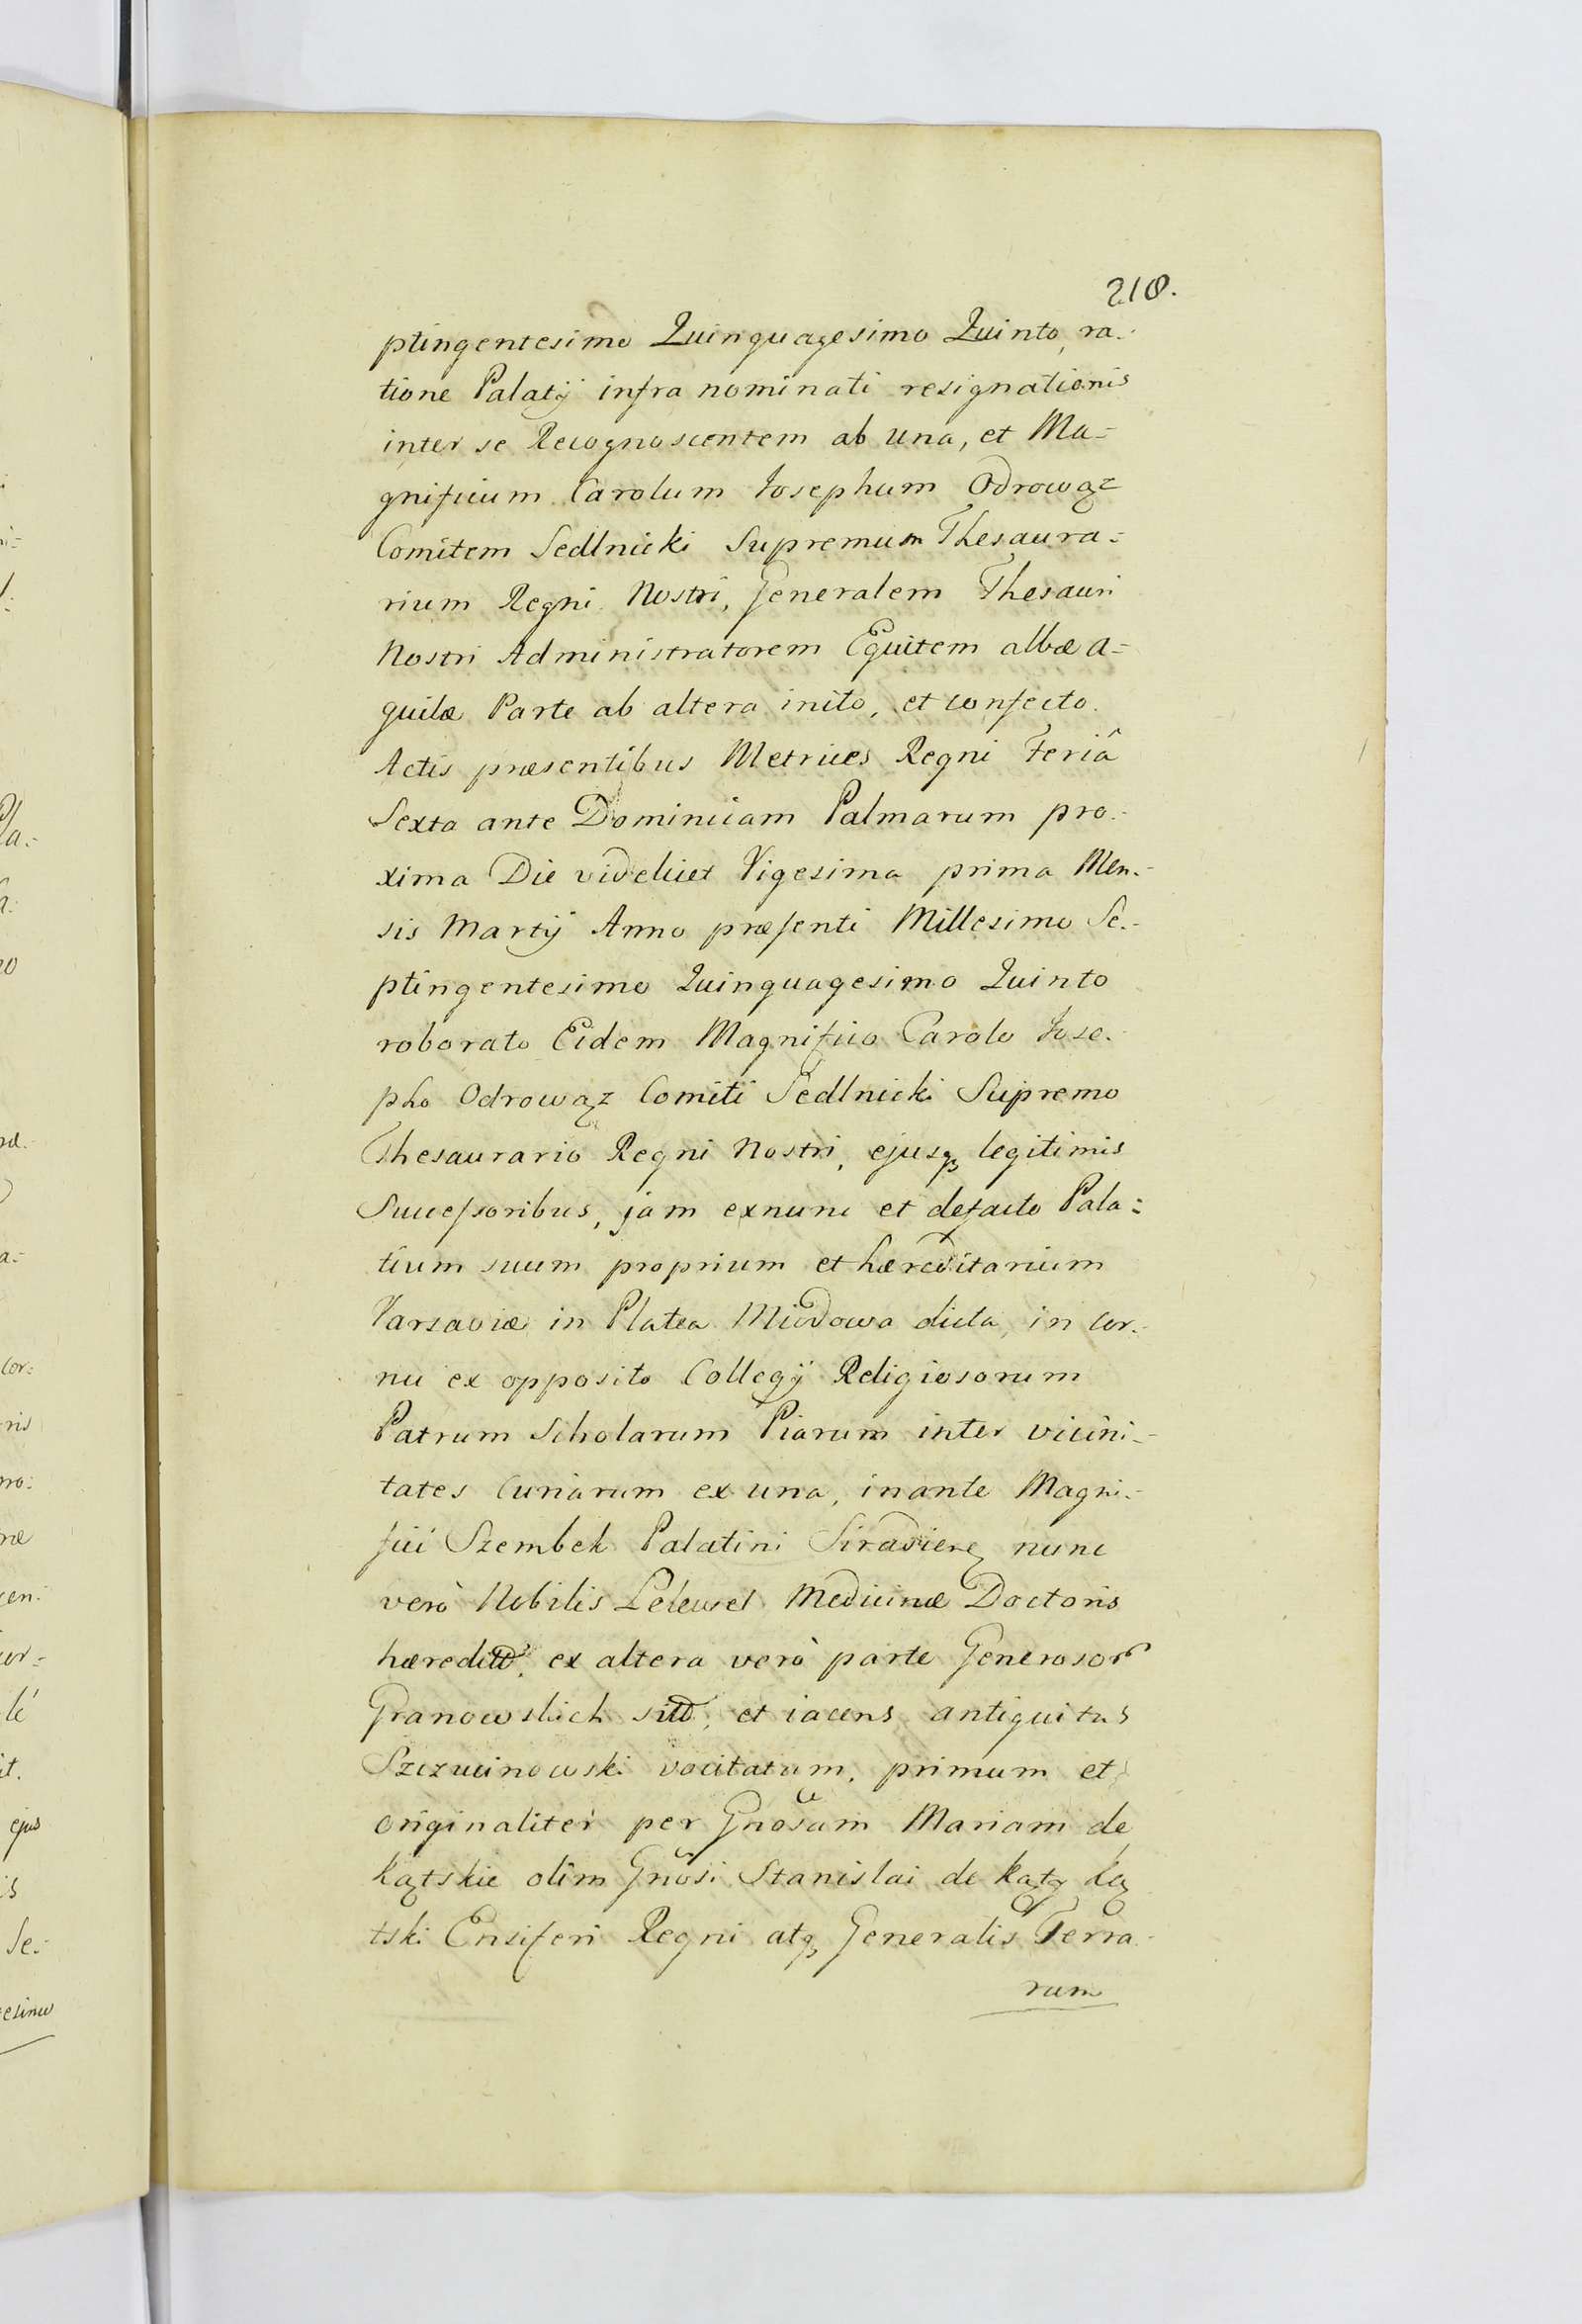 218.
ptingentesimo Quinquagesimo Quinto, ra-
tione Palatij infra nominati resignationis
inter se Recognoscentem ab una, et Ma=
gnificum Carolum Josephum Odrowąz
Comitem Sedlnicki Supremum Thesaura=
rium Regni Nostri, Generalem Thesauri
Nostri Administratorem Equitem albæ a=
quilæ Parte ab altera inito, et confecto.
Actis præsentibus Metrices Regni Feriâ
Sexta ante Dominicam Palmarum pro-
xima Die videlicet Vigesima prima Men-
sis Martij Anno præsenti Millesimo Se-
ptingentesimo Quinquagesimo Quinto
roborato Eidem Magnifico Carolo Jose-
pho Odrowąz Comiti Sedlnicki Supremo
Thesaurario Regni Nostri, ejusq legitimis
Successoribus, jam exnunc et defacto Pala=
tium suum proprium et hæreditarium
Varsaviæ in Platea Miodowa dicta, in cor-
nu ex opposito Collegij Religiosorum
Patrum Scholarum Piarum inter vicini-
tates Curiarum ex una, inante Magni-
fici Szembek Palatini Siradien nunc
verò Nobilis Lelewel Medicinæ Doctoris
hæreditt, ex altera verò parte Generosor
Granowskich sitt, et iacens antiquitus
Szczucinowski vocitatum, primum et
originaliter per Gnosam Mariam de
Kątskie olim Gnosi Stanislai de Kąty Ką
tski Ensiferi Regni atq Generalis Terra-
rum
Pla-
a-
Cor=
ris
ejus
Se-